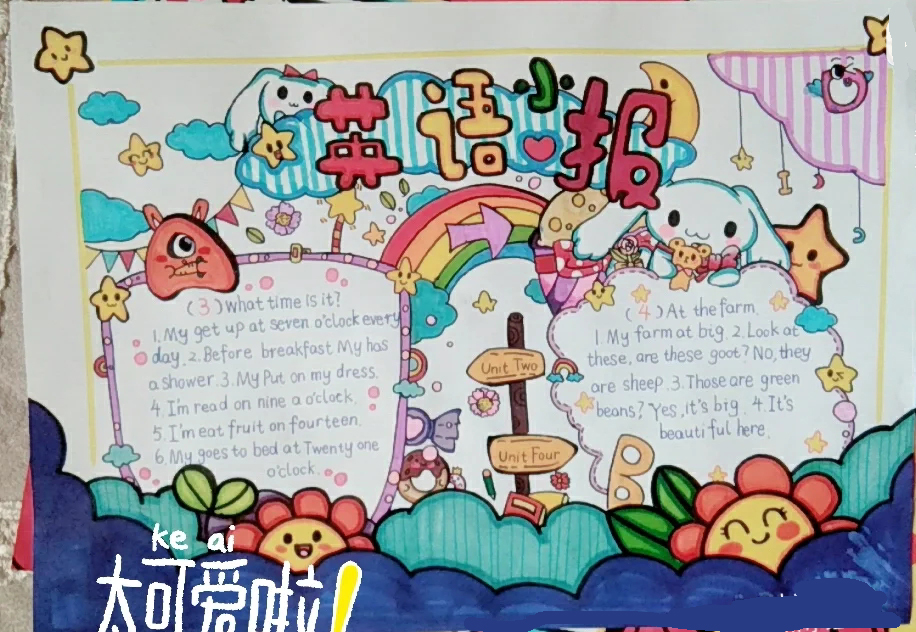 英语小报
(3) What time is it?
1. My get up at seven o'clock every
day. 2. Before breakfast My has
a shower. 3. My Put on my dress.
4. I'm read on nine a o'clock.
5. I'm eat fruit on fourteen.
6. My goes to bed at Twenty one
o'clock.
Unit Two
Unit Four
(4) At the farm.
1. My farm at big. 2. Look at
these, are these goot? No, they
are sheep. 3. Those are green
beans? Yes, it's big. 4. It's
beautiful here.
B
ke ai
太可爱啦!